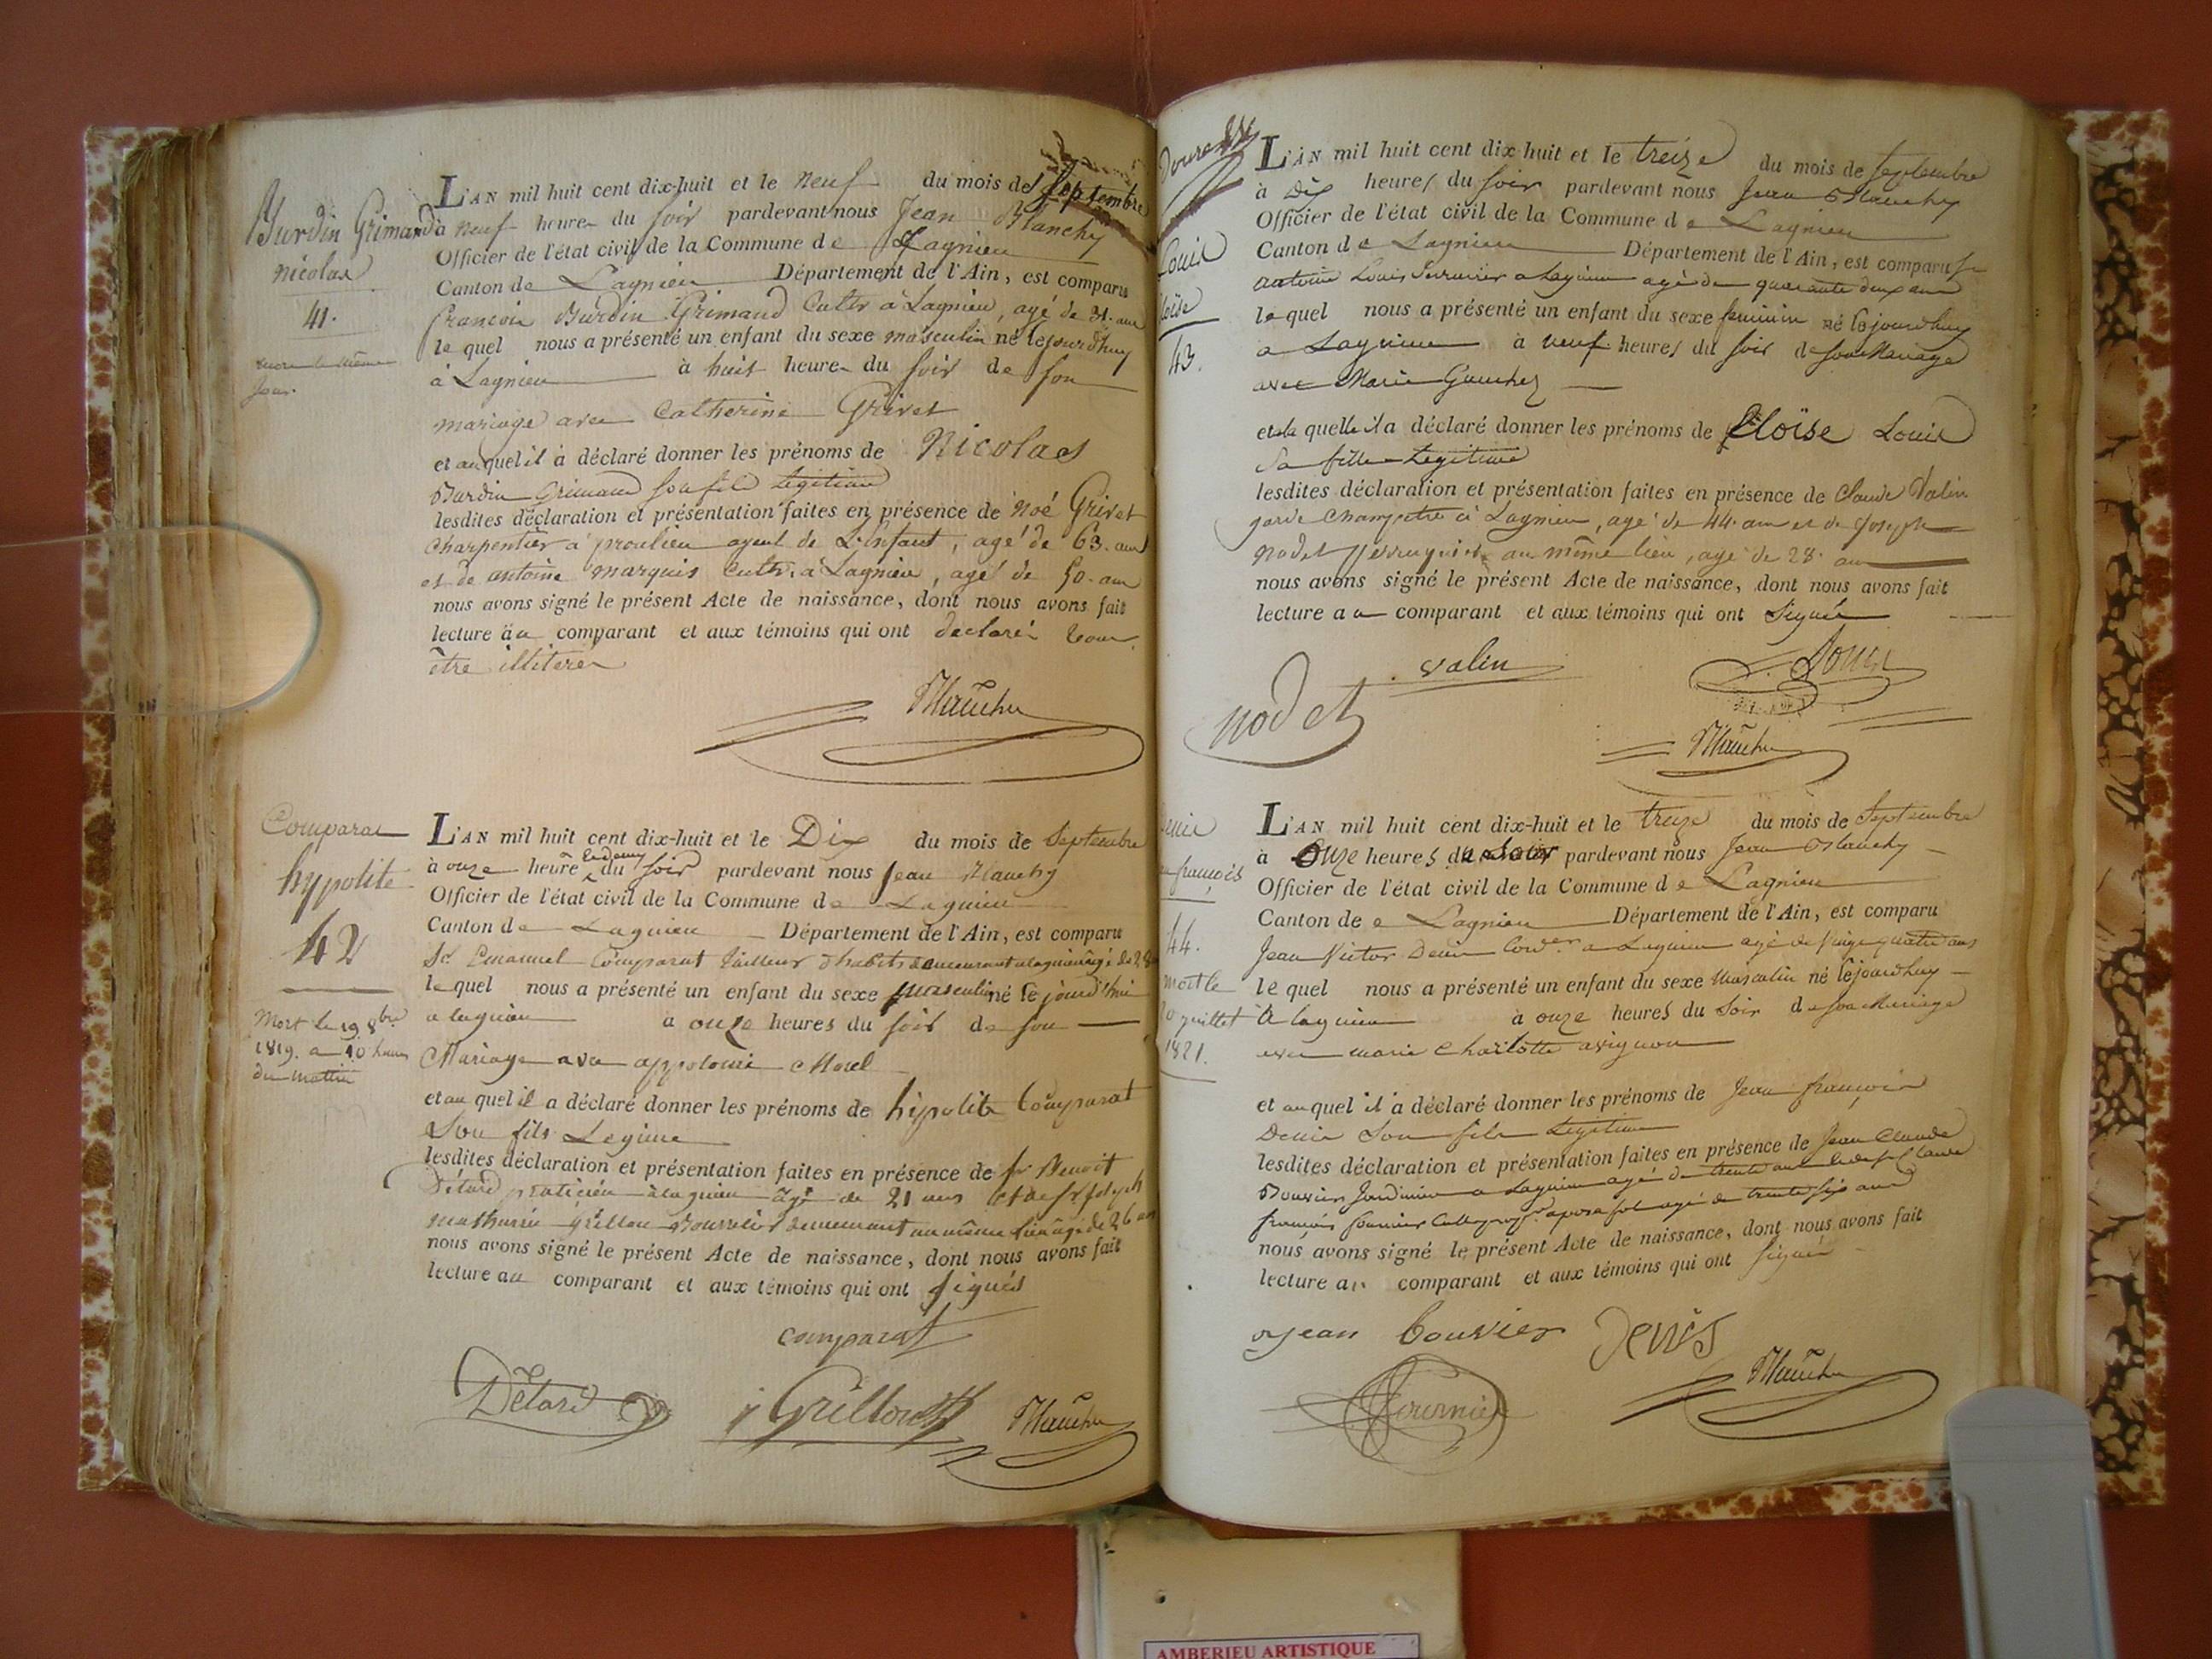 Burdin Grimand
Nicolas
41.
L'AN mil huit cent dix-huit et le neuf du mois de Septembre
à neuf heure du soir pardevant nous Jean Blanchy
Officier de l'état civil de la Commune de Lagnieu
Canton de Lagnieu Département de l'Ain, est comparu
francois Burdin Grimand Cultr à Lagnieu, agé de 31. ans
le quel nous a présenté un enfant du sexe masculin né cejourdhuy
à Lagnieu à huit heure du soir de son
mariage avec Catherine Grivet
et auquel il a déclaré donner les prénoms de Nicolas
Burdin Grimand son fils légitime
lesdites déclaration et présentation faites en présence de Noé Grivet
charpentier à proulieu agé de 63. ans
et de antoine marquis Cultr. à Lagnieu, agé de 50. ans
nous avons signé le présent Acte de naissance, dont nous avons fait
lecture au comparant et aux témoins qui ont declaré
être illiteré
Blanchy
Comparat
hypolite
42
Mort le 19 8bre
1819. a 10 heures
du matin
L'AN mil huit cent dix-huit et le Dix du mois de Septembre
à onze heure du soir pardevant nous Jean Blanchy
Officier de l'état civil de la Commune de Lagnieu
Canton de Lagnieu Département de l'Ain, est comparu
Sr. Emanuel Comparat tailleur d'habits demeurant a lagnieu âgé de 28
le quel nous a présenté un enfant du sexe masculin né ce jourd'hui
a lagnieu a onze heures du soir de son
Mariage avec appolonie Morel
et au quel il a déclaré donner les prénoms de hipolite Comparat
Son fils Legime
lesdites déclaration et présentation faites en présence de sr Benoit
Détard praticien à lagnieu âgé de 21 ans et de sr joseph
mathurin grillon Bourrelier demeurant au même lieu âgé de 26 ans
nous avons signé le présent Acte de naissance, dont nous avons fait
lecture au comparant et aux témoins qui ont signés
comparat
Détard Grillon Blanchy
Louis
43.
L'AN mil huit cent dix-huit et le treize du mois de Septembre
à Dix heures du soir pardevant nous Jean Blanchy
Officier de l'état civil de la Commune de Lagnieu
Canton de Lagnieu Département de l'Ain, est comparu
antoine Louis Serrurier a Lagnieu agé de quarante deux ans
lequel nous a présenté un enfant du sexe feminin né cejourdhuy
a Lagnieu à neuf heures du soir de son Mariage
avec Marie Gauchez
et a la quelle il a déclaré donner les prénoms de Eloïse Louis
Sa fille Légitime
lesdites déclaration et présentation faites en présence de Claude Valin
garde Champetre à Lagnieu, agé de 44. ans et de joseph
Nodet perruquier au même lieu, agé de 28. ans
nous avons signé le présent Acte de naissance, dont nous avons fait
lecture au comparant et aux témoins qui ont Signé
valin Louis
nodet
Blanchy
44.
mort le
20 juillet
1821.
L'AN mil huit cent dix-huit et le treize du mois de Septembre
à Onze heures du Soir pardevant nous Jean Blanchy
Officier de l'état civil de la Commune de Lagnieu
Canton de Lagnieu Département de l'Ain, est comparu
Jean Victor Denis Cordr a Lagnieu agé de vingt quatre ans
le quel nous a présenté un enfant du sexe Masculin né cejourdhuy
à lagnieu à onze heures du Soir de son Mariage
avec marie Charlotte avignon
et au quel il a déclaré donner les prénoms de Jean françois
Denis Son fils Légitime
lesdites déclaration et présentation faites en présence de Jean Claude
Bouvier Jardinier a Lagnieu agé de trente ans
françois fournier agé de trente six ans
nous avons signé le présent Acte de naissance, dont nous avons fait
lecture au comparant et aux témoins qui ont signé
jean bouvier Denis
Fournier Blanchy
AMBERIEU ARTISTIQUE